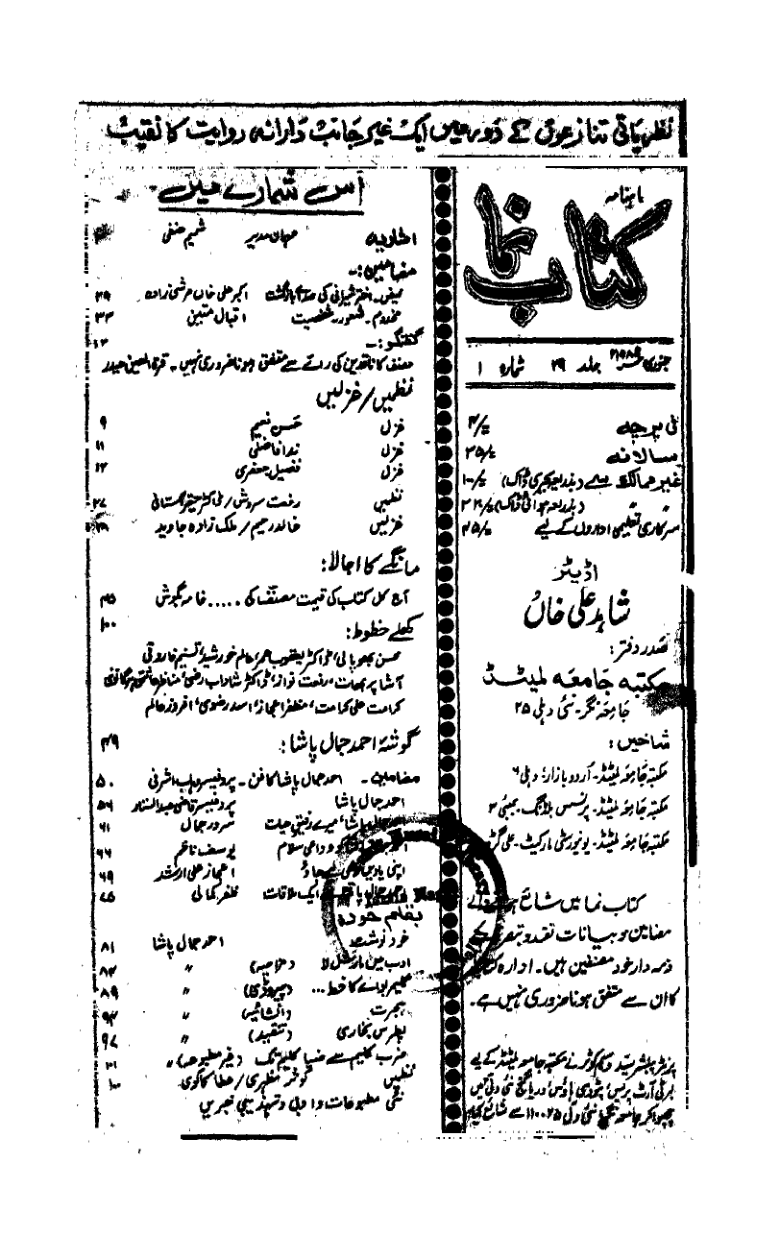 نظریاتی تنازعوں کے دور میں ایک غیر جانب دارانہ روایت کا نقیب
ماہنامہ
کتاب نما
جنوری ۱۹۸۹ جلد ۲۹ شمارہ ۱
فی پرچہ ۳/=
سالانہ ۳۵/=
غیر ممالک سے (بذریعہ بحری ڈاک)
(بذریعہ ہوائی ڈاک)
سرکاری تعلیمی اداروں کے لیے ۴۵/=
اڈیٹر
شاہد علی خاں
صدر دفتر:
مکتبہ جامعہ لمیٹڈ
جامعہ نگر۔ نئی دہلی ۲۵
شاخیں:
مکتبہ جامعہ لمیٹڈ۔ اردو بازار، دہلی ۶
مکتبہ جامعہ لمیٹڈ۔ پرنسس بلڈنگ۔ بمبئی ۳
مکتبہ جامعہ لمیٹڈ۔ یونیورسٹی مارکیٹ۔ علی گڑھ
کتاب نما میں شائع
مضامین و بیانات نقد و
ذمہ دار خود مصنفین ہیں۔ ادارہ
کا ان سے متفق ہونا ضروری نہیں ہے۔
پرنٹر پبلشر سید وسیم کوثر نے مکتبہ جامعہ لمیٹڈ کے لیے
برٹی آرٹ پریس، پٹودی ہاؤس، دریا گنج نئی دہلی میں
چھپوا کر جامعہ نگر نئی دہلی ۱۱۰۰۲۵ سے شائع کیا۔
اس شمارے میں
اشاریہ مہمان مدیر شمیم حنفی
مضامین:۔
اختر شیرانی کی اکبر علی خاں عرشی زادہ ۲۹
مخدوم۔ شعور۔ شخصیت اقبال متین ۳۳
گفتگو:۔ ۱۳
مصنف کا ناقدین کی رائے سے متفق ہونا ضروری نہیں۔ قرۃ العین حیدر
نظمیں/غزلیں
غزل حسن نعیم ۹
غزل ندا فاضلی ۱۱
غزل فضیل جعفری ۱۲
نظمیں رفعت سروش/ڈاکٹر ۲۷
غزلیں خالد رحیم/ملک زادہ جاوید
مانگے کا اجالا:
آج کل کتاب کی قیمت مصنف کی ..... خامہ بگوش ۴۵
کھلے خطوط: ۱۰۰
محسن بھوپالی، ڈاکٹر یعقوب عمر، عالم خورشید، تسنیم فاروقی
آشا پربھات، رفعت نواز، ڈاکٹر شاداب رضی، مناظر عاشق ہرگانوی
کرامت علی کرامت، مظفر اعجاز، اسد رضوی، افروز عالم
گوشۂ احمد جمال پاشا: ۴۹
مضامین۔ احمد جمال پاشا کا فن۔ پروفیسر وہاب اشرفی ۵۰
احمد جمال پاشا پروفیسر قاضی عبدالستار ۵۶
پاشا، میرے رفیق حیات سرور جمال ۶۱
وداعی سلام یوسف ناظم ۶۶
اپنی یادیں اعجاز علی ارشد ۶۹
ایک ملاقات ظفر کمالی ۷۵
بقلم خود:
خود نوشت احمد جمال پاشا ۸۱
ادب میں مارشل لا 〃 ۸۳
کا خط... (پیروڈی) 〃 ۸۹
ہجرت (انشائیہ) 〃 ۹۴
پطرس بخاری (تنقید) 〃 ۹۷
ضرب کلیم سے ضیا کلیم تک (غیر مطبوعہ) 〃
نظمیں کوثر مظہری/عطا کاکوی
نئی مطبوعات و ادبی و تہذیبی خبریں